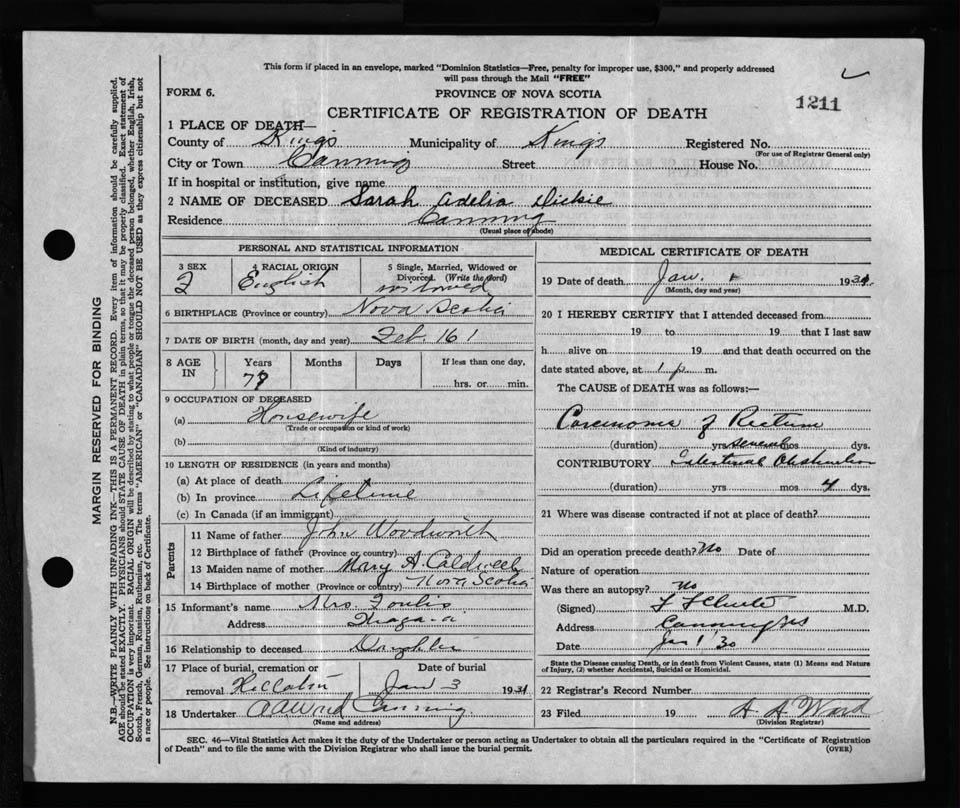 This form if placed in an envelope, marked "Dominion Statistics—Free, penalty for improper use, $300," and properly addressed
will pass through the Mail "FREE"
FORM 6.
PROVINCE OF NOVA SCOTIA
1211
CERTIFICATE OF REGISTRATION OF DEATH
1 PLACE OF DEATH—
County of Kings Municipality of Kings Registered No.
(For use of Registrar General only)
City or Town Canning Street House No.
If in hospital or institution, give name
2 NAME OF DECEASED Sarah Adelia Dickie
Residence Canning
(Usual place of abode)
PERSONAL AND STATISTICAL INFORMATION
3 SEX 4 RACIAL ORIGIN 5 Single, Married, Widowed or
Divorced. (Write the word)
English widowed
6 BIRTHPLACE (Province or country) Nova Scotia
7 DATE OF BIRTH (month, day and year) Feb. 16
8 AGE IN Years Months Days If less than one day,
hrs. or min.
9 OCCUPATION OF DECEASED
(a) Housewife
(Trade or occupation or kind of work)
(b)
(Kind of industry)
10 LENGTH OF RESIDENCE (in years and months)
(a) At place of death
(b) In province Lifetime
(c) In Canada (if an immigrant)
Parents
11 Name of father John Woodworth
12 Birthplace of father (Province or country)
13 Maiden name of mother Mary A. Caldwell
14 Birthplace of mother (Province or country) Nova Scotia
15 Informant's name Mrs.
Address
16 Relationship to deceased Daughter
17 Place of burial, cremation or Date of burial
removal Jan 3 1931
18 Undertaker Canning
(Name and address)
MEDICAL CERTIFICATE OF DEATH
19 Date of death Jan. 193
(Month, day and year)
20 I HEREBY CERTIFY that I attended deceased from
19 to 19 that I last saw
h alive on 19 and that death occurred on the
date stated above, at 1 p. m.
The CAUSE of DEATH was as follows:—
Carcinoma of Rectum
(duration) yrs several mos dys.
CONTRIBUTORY Intestinal Obstruction
(duration) yrs mos 4 dys.
21 Where was disease contracted if not at place of death?
Did an operation precede death? No Date of
Nature of operation
Was there an autopsy? No
(Signed) M.D.
Address Canning NS
Date Jan 1 30
State the Disease causing Death, or in death from Violent Causes, state (1) Means and Nature
of Injury, (2) whether Accidental, Suicidal or Homicidal.
22 Registrar's Record Number
23 Filed 19 A A Ward
(Division Registrar)
SEC. 46—Vital Statistics Act makes it the duty of the Undertaker or person acting as Undertaker to obtain all the particulars required in the "Certificate of Registration
of Death" and to file the same with the Division Registrar who shall issue the burial permit.
(OVER)
MARGIN RESERVED FOR BINDING
N.B.—WRITE PLAINLY WITH UNFADING INK—THIS IS A PERMANENT RECORD. Every item of information should be carefully supplied.
AGE should be stated EXACTLY. PHYSICIANS should STATE CAUSE OF DEATH in plain terms, so that it may be properly classified. Exact statement of
OCCUPATION is very important. RACIAL ORIGIN will be described by stating to what people or tongue the deceased person belonged, whether English, Irish,
Scotch, French, German, Russian, Ruthenian, etc. The terms "AMERICAN" or "CANADIAN" SHOULD NOT BE USED as they express citizenship but not
a race or people. See instructions on back of Certificate.